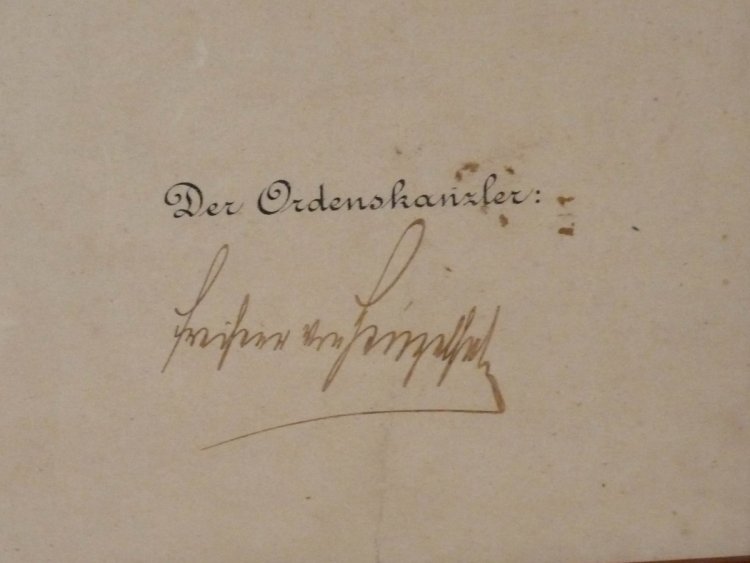 Der Ordenskanzler:
Freiherr von